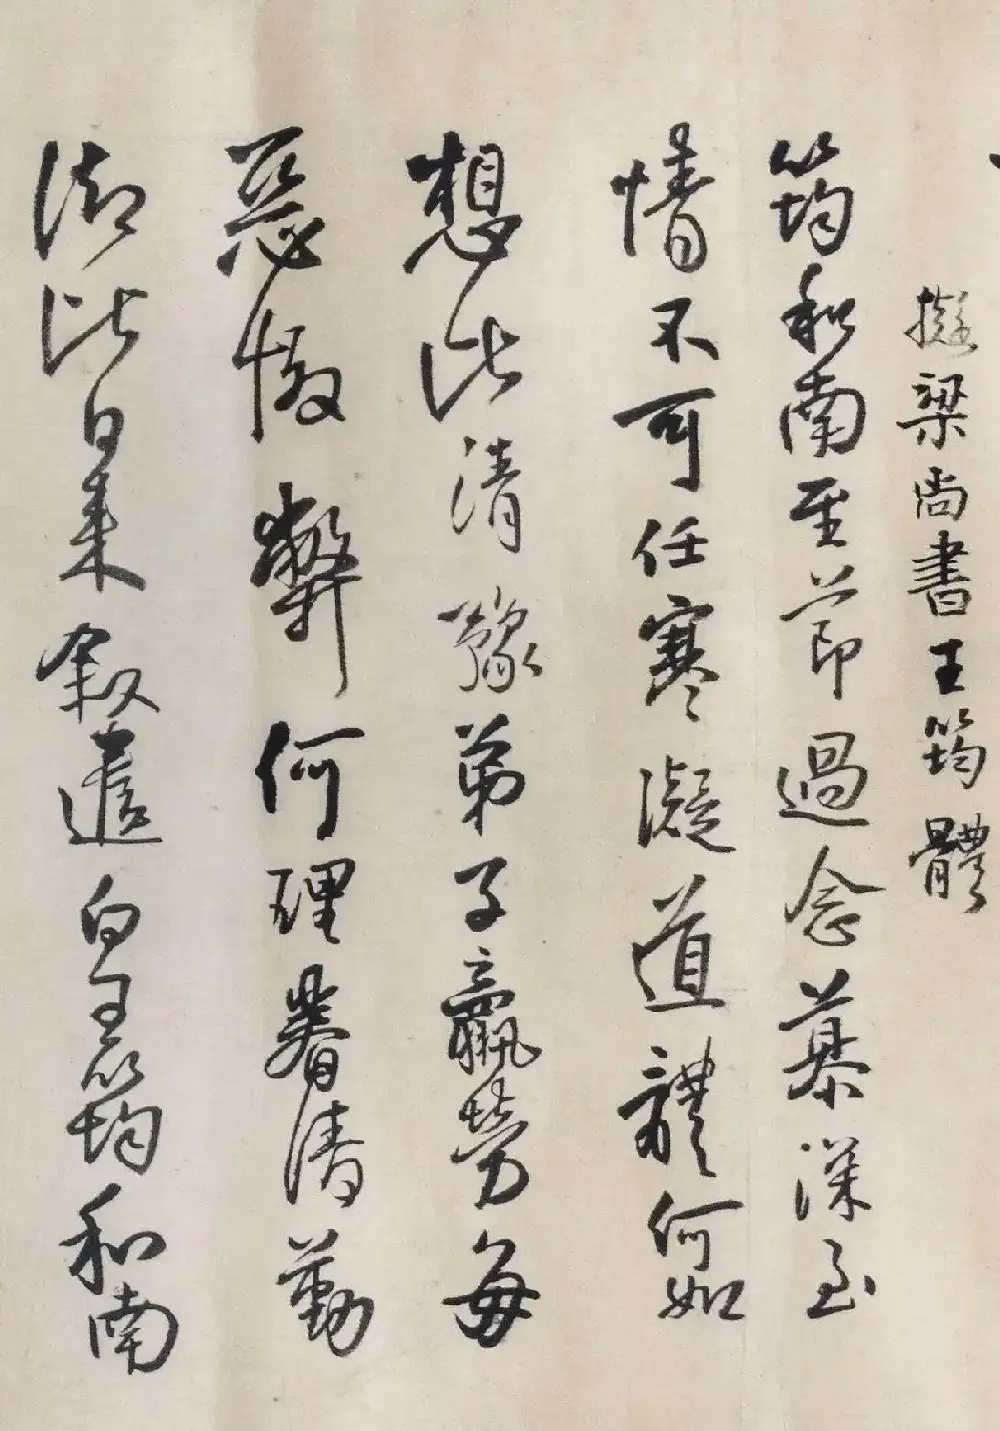 擬梁尚書王筠體
筠和南至節過念慕深至
情不可任寒凝道體何如
想比清豫弟子羸勞每
惡憿弊何理眷清勤
比日來叙遣白王筠和南